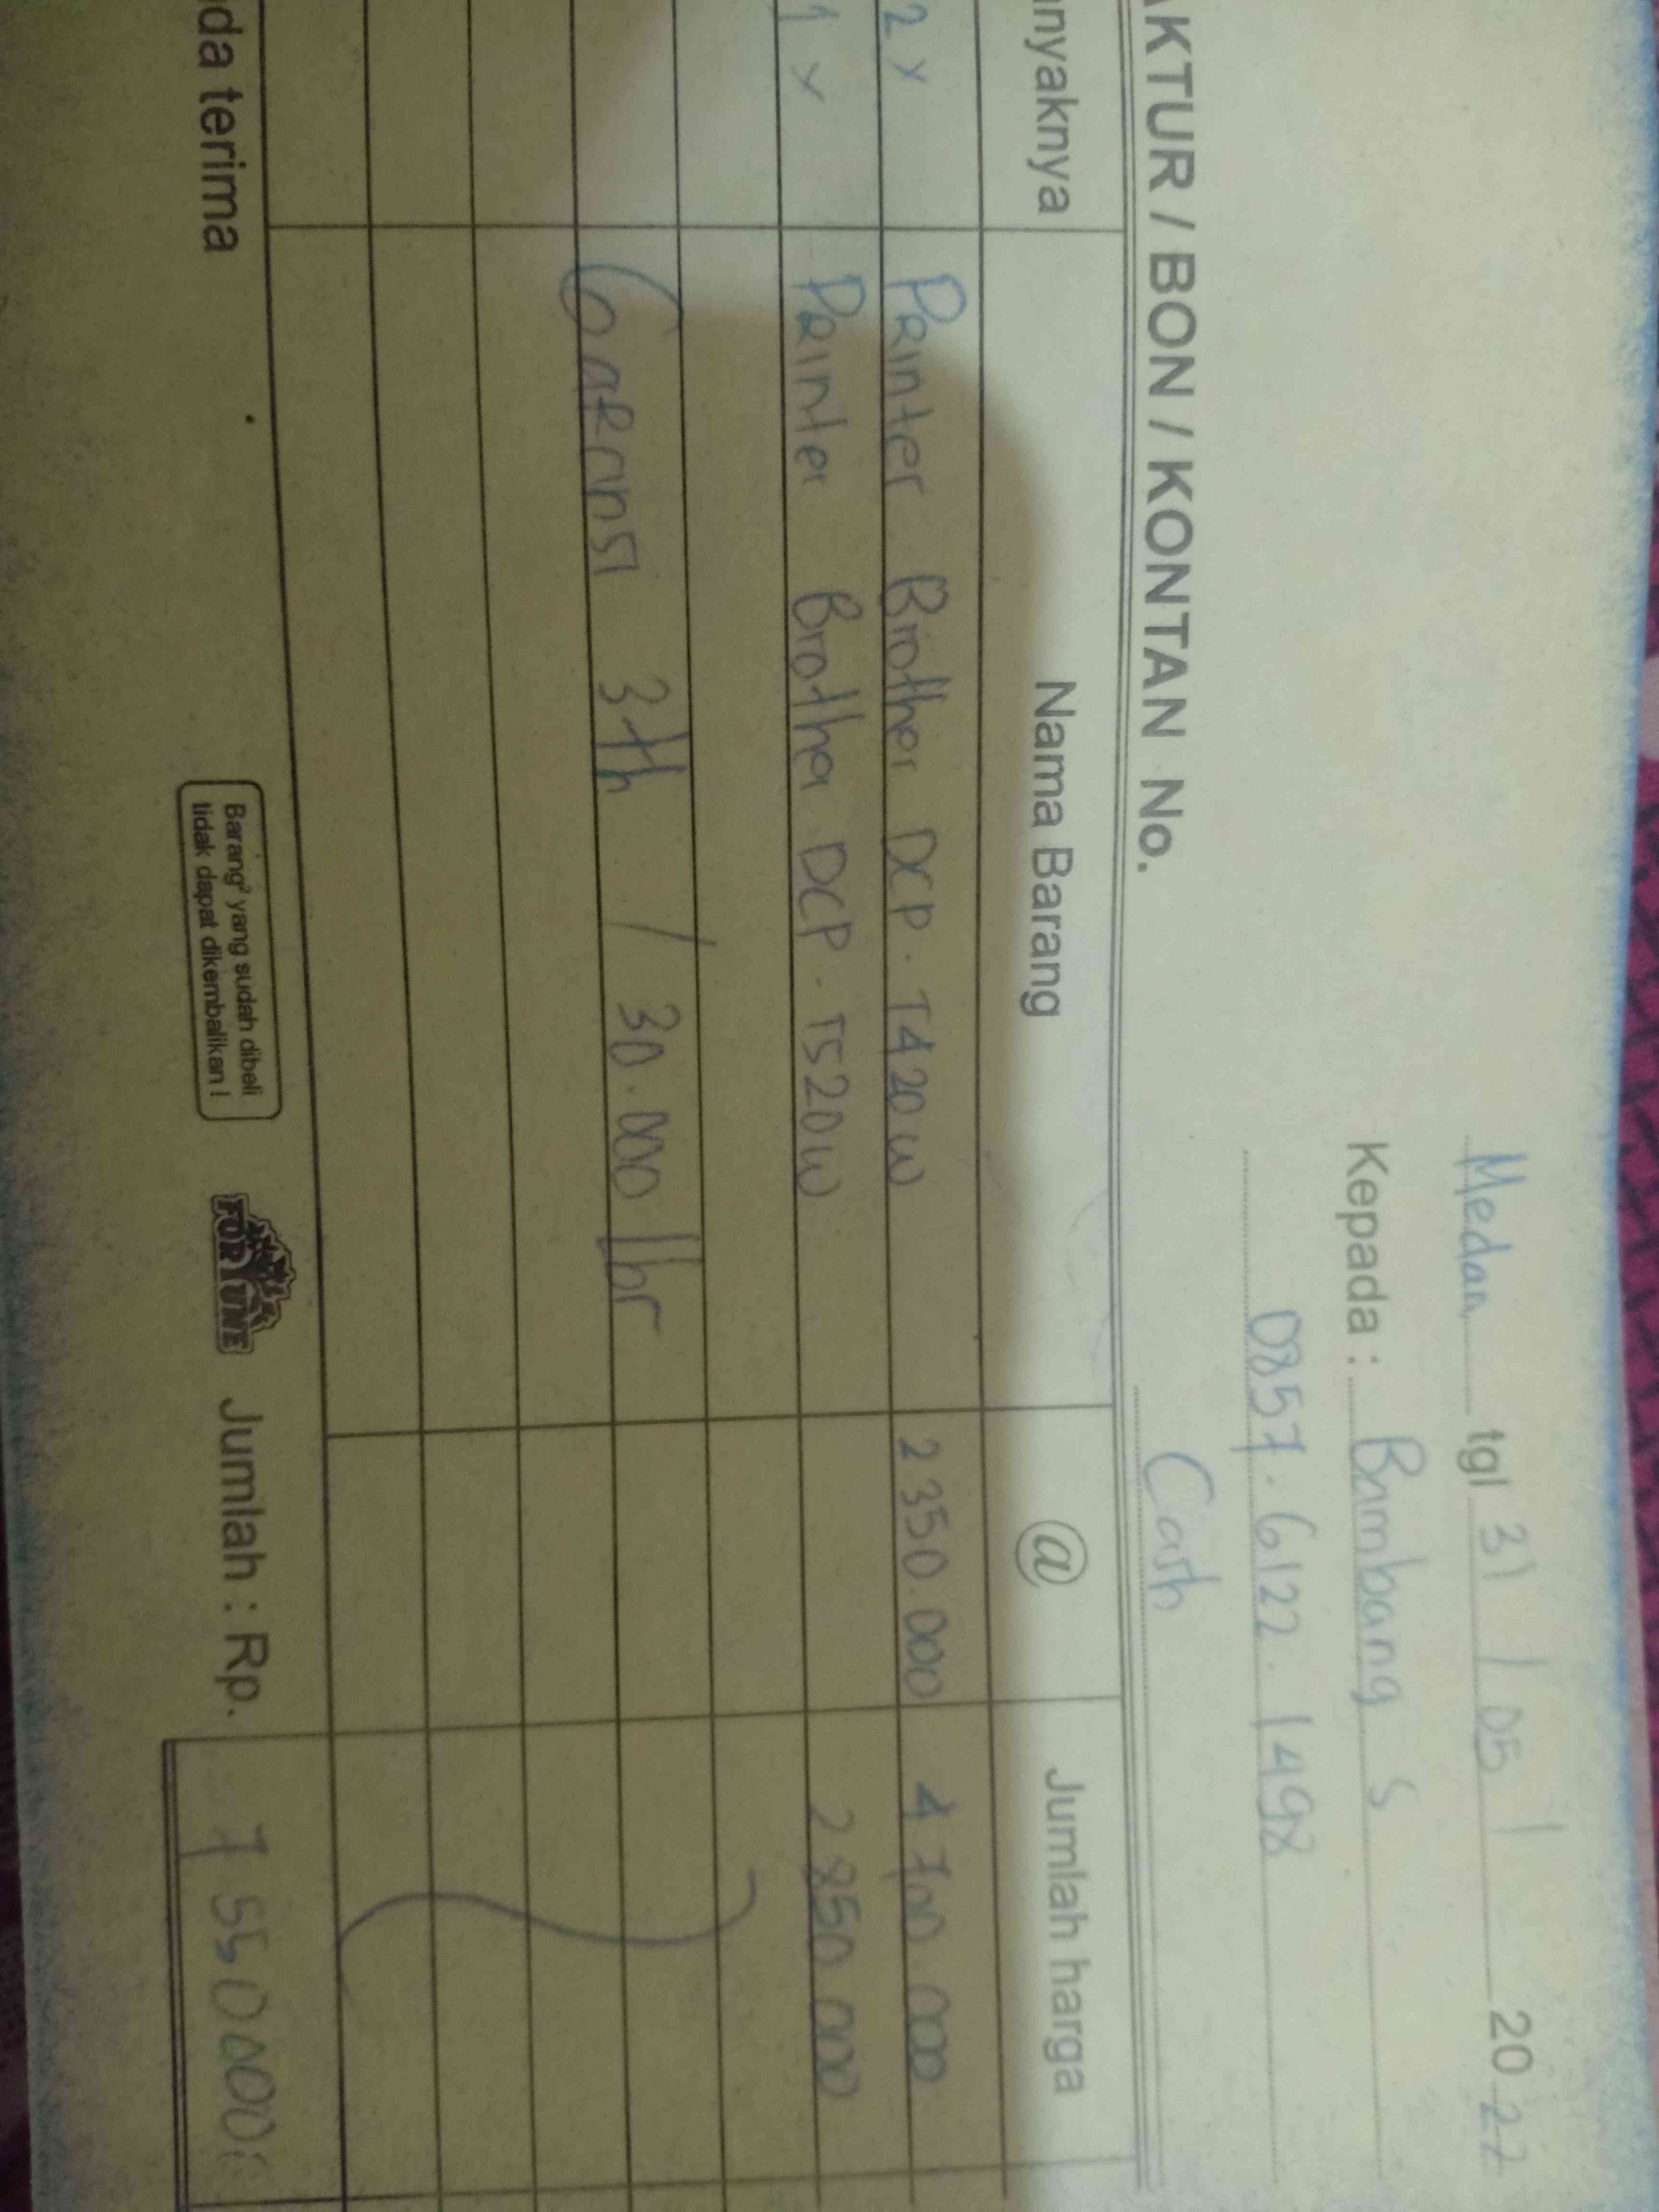 Medan tgl 31 / 05 / 20 22
Kepada : Bambang S
0857. 6122. 1498
AKTUR / BON / KONTAN No. Cash
anyaknya Nama Barang @ Jumlah harga
2 x Printer Brother DCP. T420W 2 350.000 4 700.000
1 x Printer Brother DCP. T520W 2 850 000
Garansi 3 th / 30.000 lbr
da terima Barang² yang sudah dibeli tidak dapat dikembalikan ! FORTUNE Jumlah : Rp. 7 550 000